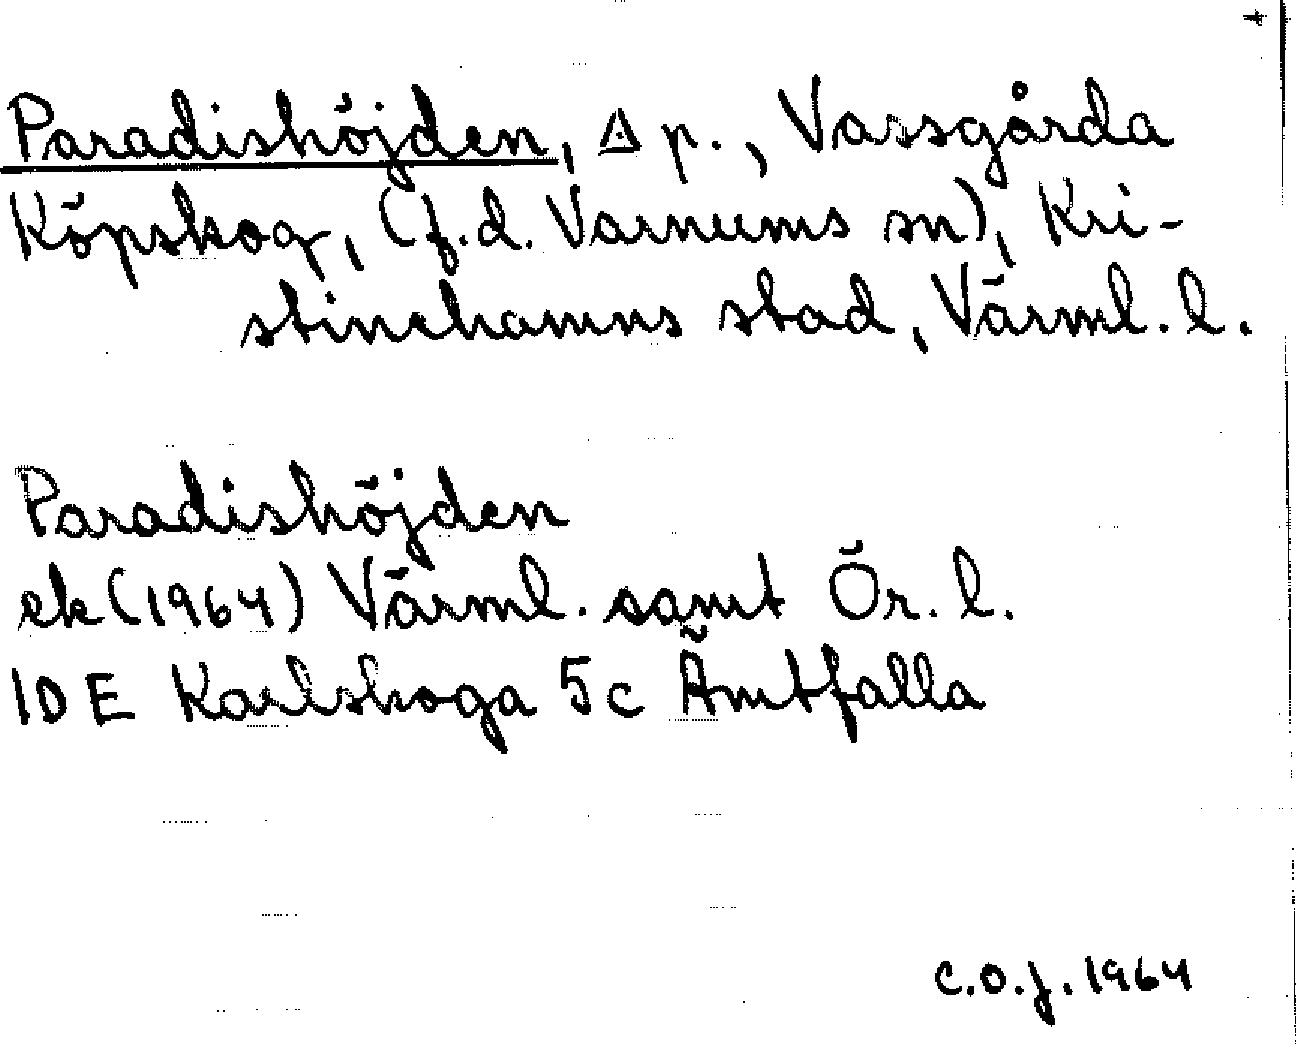 Paradishöjden, Δ p., Varsgårda
Köpskog, (f.d. Varnums sn), Kri-
stinehamns stad, Värml. l.
Paradishöjden
ek (1964) Värml. samt Ör. l.
10 E Karlskoga 5c Ämtfalla
C.O.J. 1964